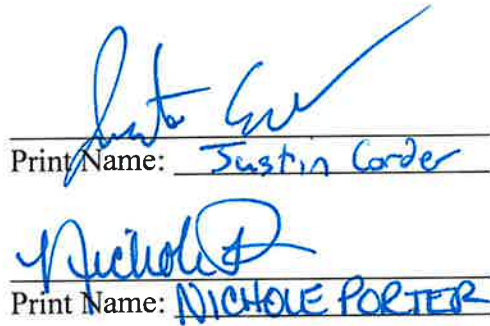 Print Name: Justin Corder
Nichole P
Print Name: NICHOLE PORTER